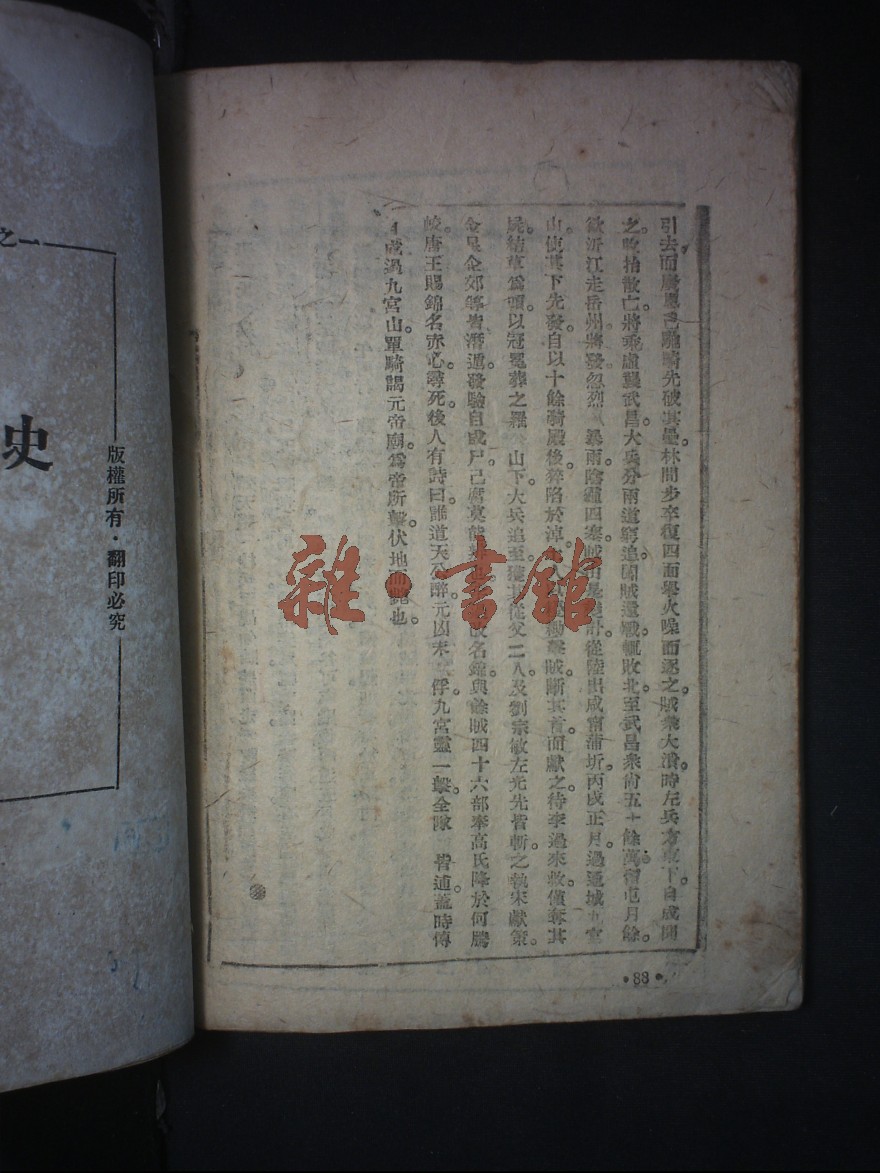 引去而將騎先破其壘林間步卒復四面舉火噪而逐之。賊衆大潰。時左兵方東下。自成聞
之。收拾散亡。將乘虛襲武昌。大兵分兩道窮追。聞賊還戰輒敗北。至武昌衆尚五十餘萬。屯月餘。
欲沂江走岳州。將發忽烈 暴雨陰霾四塞。賊由是 計從陸出咸甯蒲圻。丙戌正月。過通城九宮
山。使其下先發。自以十餘騎殿後。猝陷於淖。 擊賊。斷其首而獻之。待李過來救。僅奪其
屍。結草爲頭以冠冕葬之羅 山下。大兵追至。獲其從父二人及劉宗敏左光先皆斬之。執宋獻策。
企郊等皆潛遁。發驗自成尸。已腐莫能 也。 改名錦。與餘賊四十六部奉高氏降於何騰
蛟。唐王賜錦名赤心。尋死。後人有時曰。誰道天公醉。元凶未 俘。九宮靈一擊。全隊 皆逋。蓋時傳
自成過九宮山。單騎謁元帝廟。爲帝所擊。伏地而 也。
•88•
之一
史
版權所有·翻印必究
雜·書館